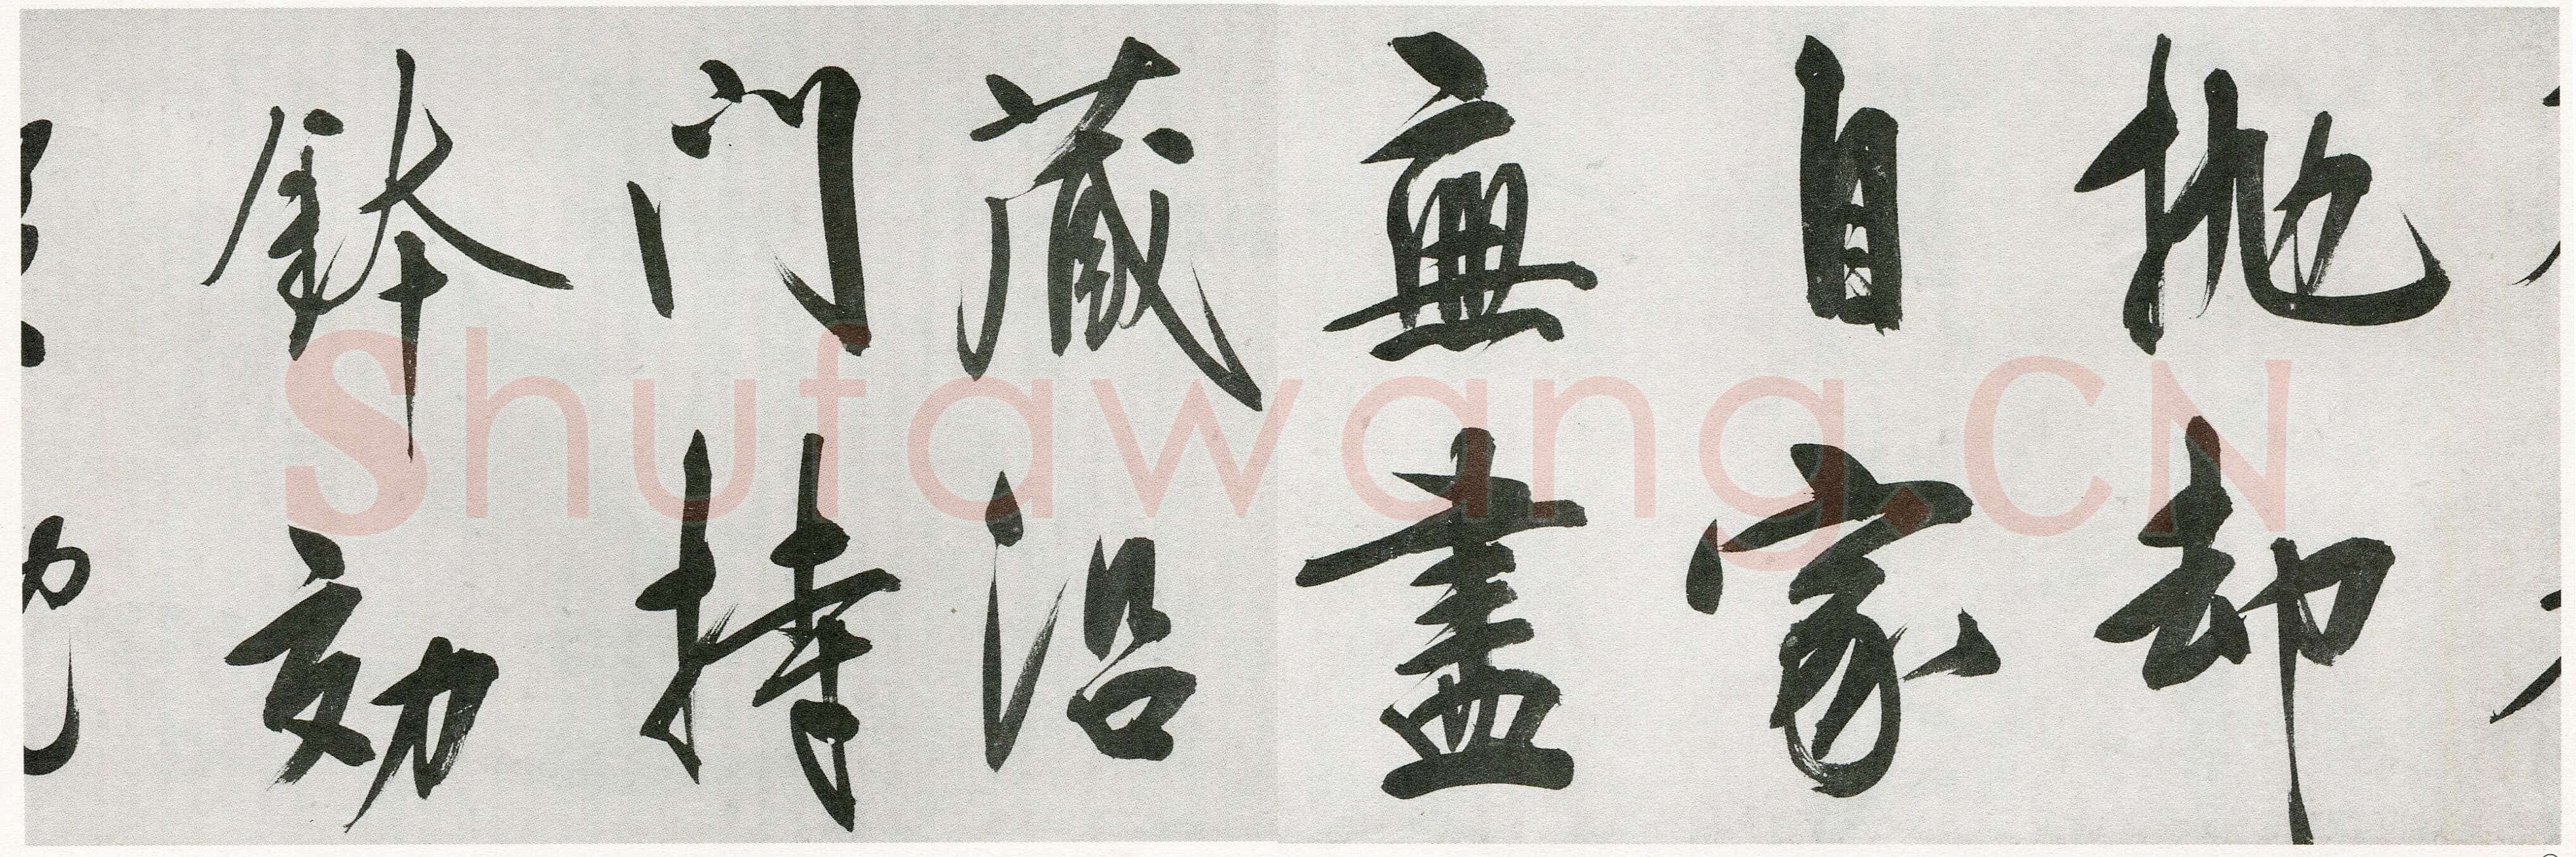 抛却
自家
無盡
藏沿
門持
鉢効
Shufawang.CN